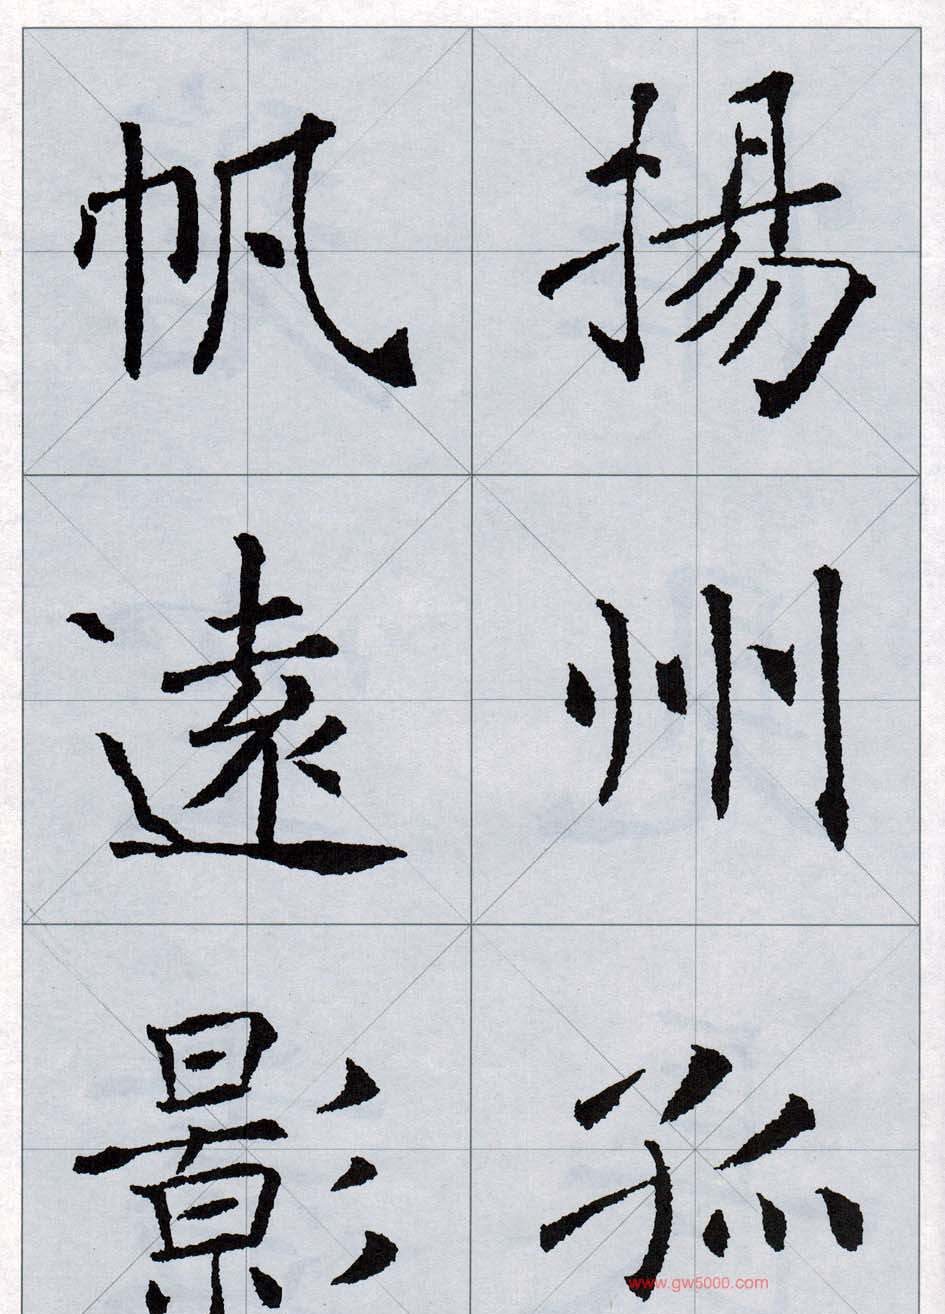 揚州孤
帆遠影
www.gw5000.com